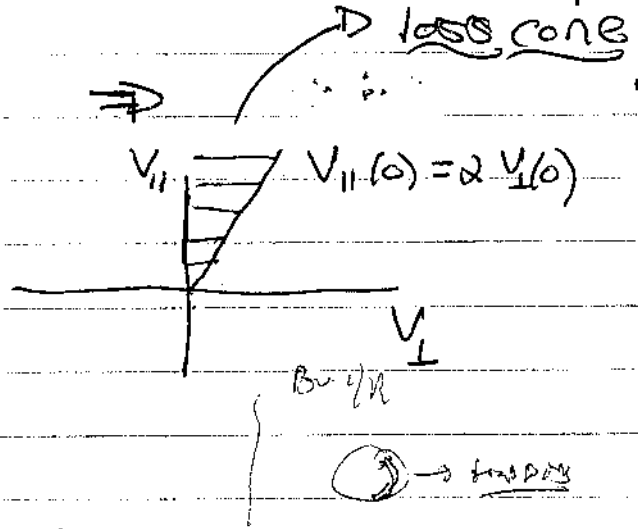 loss cone
V∥ V∥(0) = α V⊥(0)
V⊥